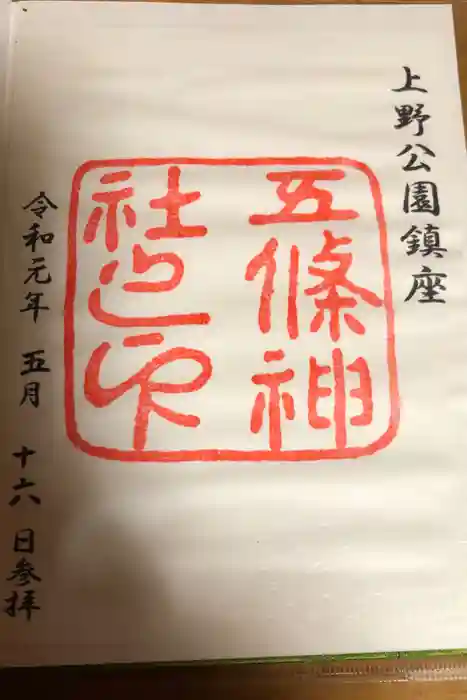 上野公園鎮座
五條神
社之印
令和元年 五月 十六日参拝